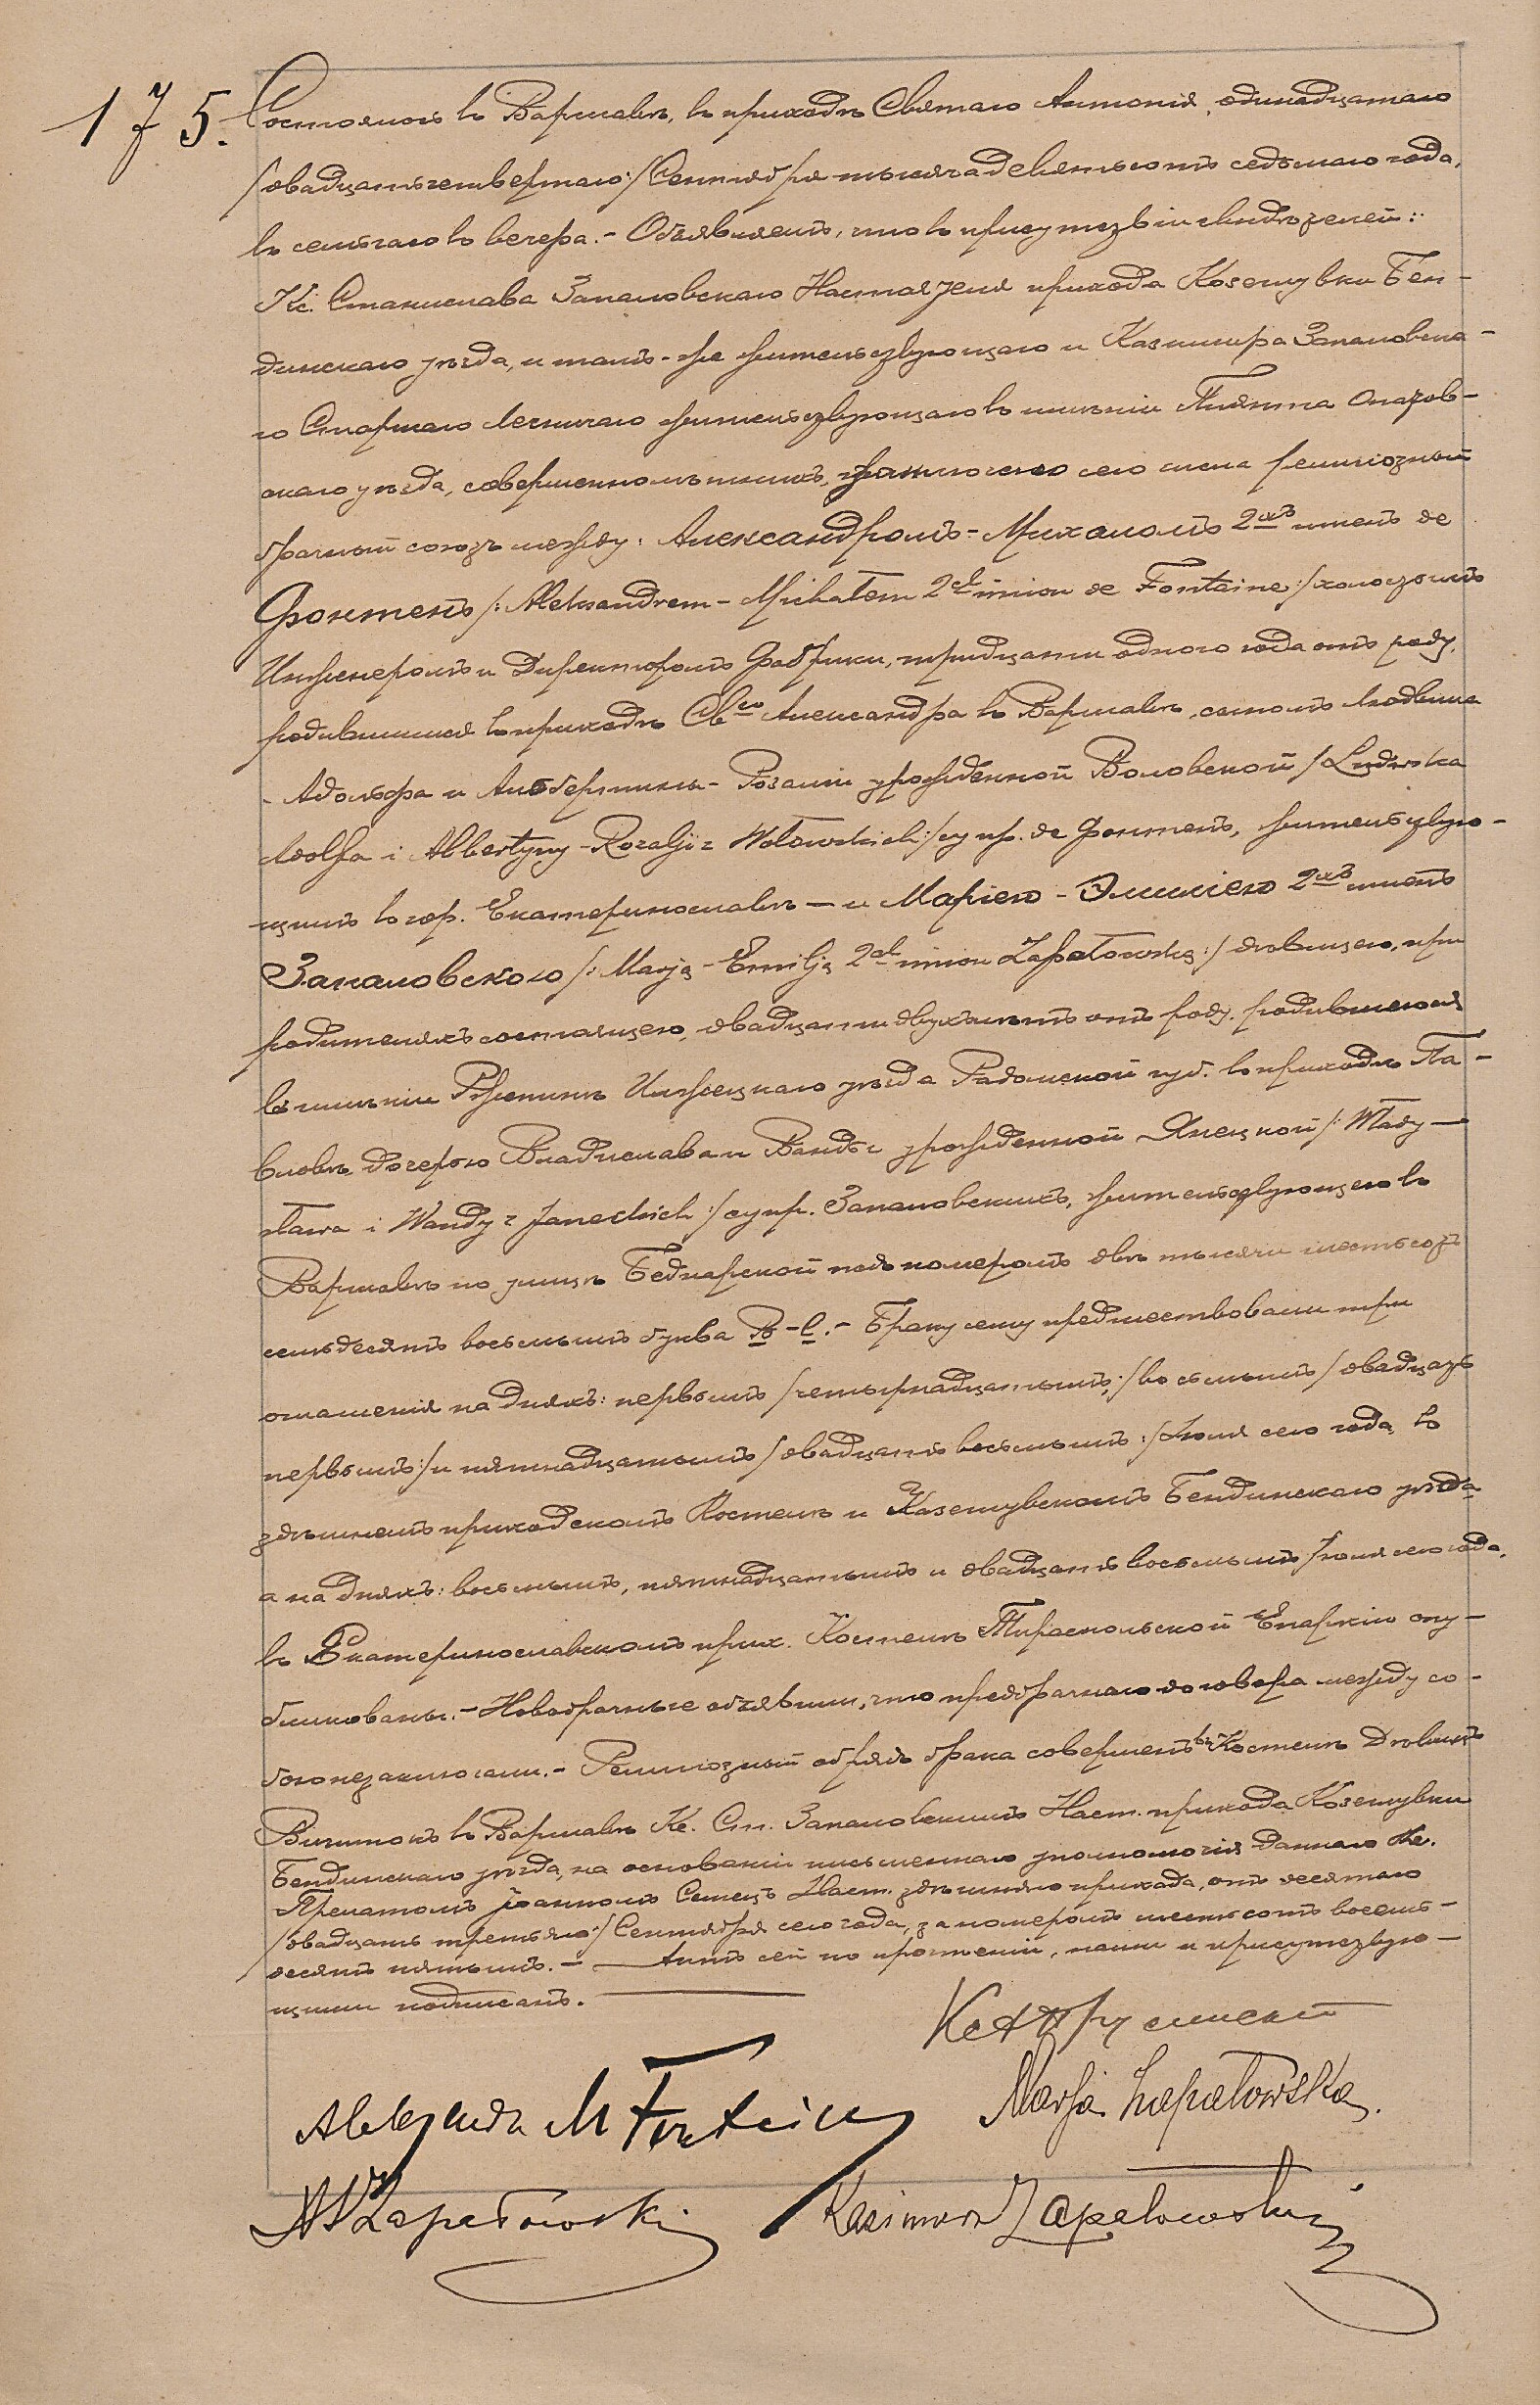 175. Состоялось въ Варшавѣ, въ приходѣ Святаго Антонія, одинадцатаго
/двадцать четвертаго:/ Сентября тысяча девятьсотъ седьмаго года,
въ семь часовъ вечера. - Объявляемъ, что въ присутствіи свидѣтелей:
Кс. Станислава Запаловскаго Настоятеля прихода Козегувки Бен-
динскаго уѣзда, и тамъ-же жительствующаго и Казимира Запаловска-
го Старшаго Лесничаго жительствующаго въ имѣніи Опатов-
скаго уѣзда, совершеннолѣтнихъ, заключенъ сего числа религіозный
брачный союзъ между: Александромъ-Михаломъ 2хъ именъ де
Фонтенъ /: Aleksandrem-Michałem 2ch imion de Fontaine :/ холостымъ
Инженеромъ и Директоромъ Фабрики, тридцати одного года отъ роду,
родившимся въ приходѣ Свго Александра въ Варшавѣ, сыномъ Людвика
- Адольфа и Альбертины-Розаліи урожденной Воловской /: Ludwika
Adolfa i Albertyny-Rozalji z Wołowskich :/ супр. де Фонтенъ, жительствую-
щимъ въ гор. Екатеринославѣ — и Маріею-Эмиліею 2хъ именъ
Запаловскою /: Marją-Emilją 2ch imion Zapałowską :/ дѣвицею, при
родителяхъ состоящею, двадцати двухъ лѣтъ отъ роду, родившеюся
въ имѣніи Илжецкаго уѣзда Радомской губ. въ приходѣ Па-
вловъ, дочерью Владислава и Ванды урожденной Янецкой /: Włady-
sława i Wandy z Janeckich :/ супр. Запаловскихъ, жительствующею въ
Варшавѣ по улицѣ Беднарской подъ номеромъ двѣ тысячи шестьсотъ
семьдесятъ восьмымъ буква В-С. - Браку сему предшествовали три
оглашенія на дняхъ: первымъ /четырнадцатымъ:/ восьмымъ /двадцать
первымъ:/ и пятнадцатымъ /двадцать восьмымъ:/ Іюля сего года, въ
здѣшнемъ приходскомъ Костелѣ и Каземувскомъ Бендинскаго уѣзда
а на дняхъ: восьмымъ, пятнадцатымъ и двадцать восьмымъ Іюля сего года,
въ Екатеринославскомъ прих. Костелѣ Тираспольской Епархіи опу-
бликованы. - Новобрачные объявили, что предбрачнаго договора между со-
бою не заключали. - Религіозный обрядъ брака совершенъ въ Костелѣ
въ Варшавѣ Кс. Ст. Запаловскимъ Наст. прихода Коземувки
Бендинскаго уѣзда, на основаніи письменнаго уполномочія даннаго Кс.
Прелатомъ Іоанномъ Семецъ Наст. здѣшняго прихода, отъ десятаго
/двадцать третьяго:/ Сентября сего года, за номеромъ шестьсотъ восемь-
десятъ пятымъ. - Актъ сей по прочтеніи, нами и присутствую-
щими подписанъ.
Marja Zapałowska.
Aleksander M Fontaine
Zapałowski
Kazimierz Zapałowski